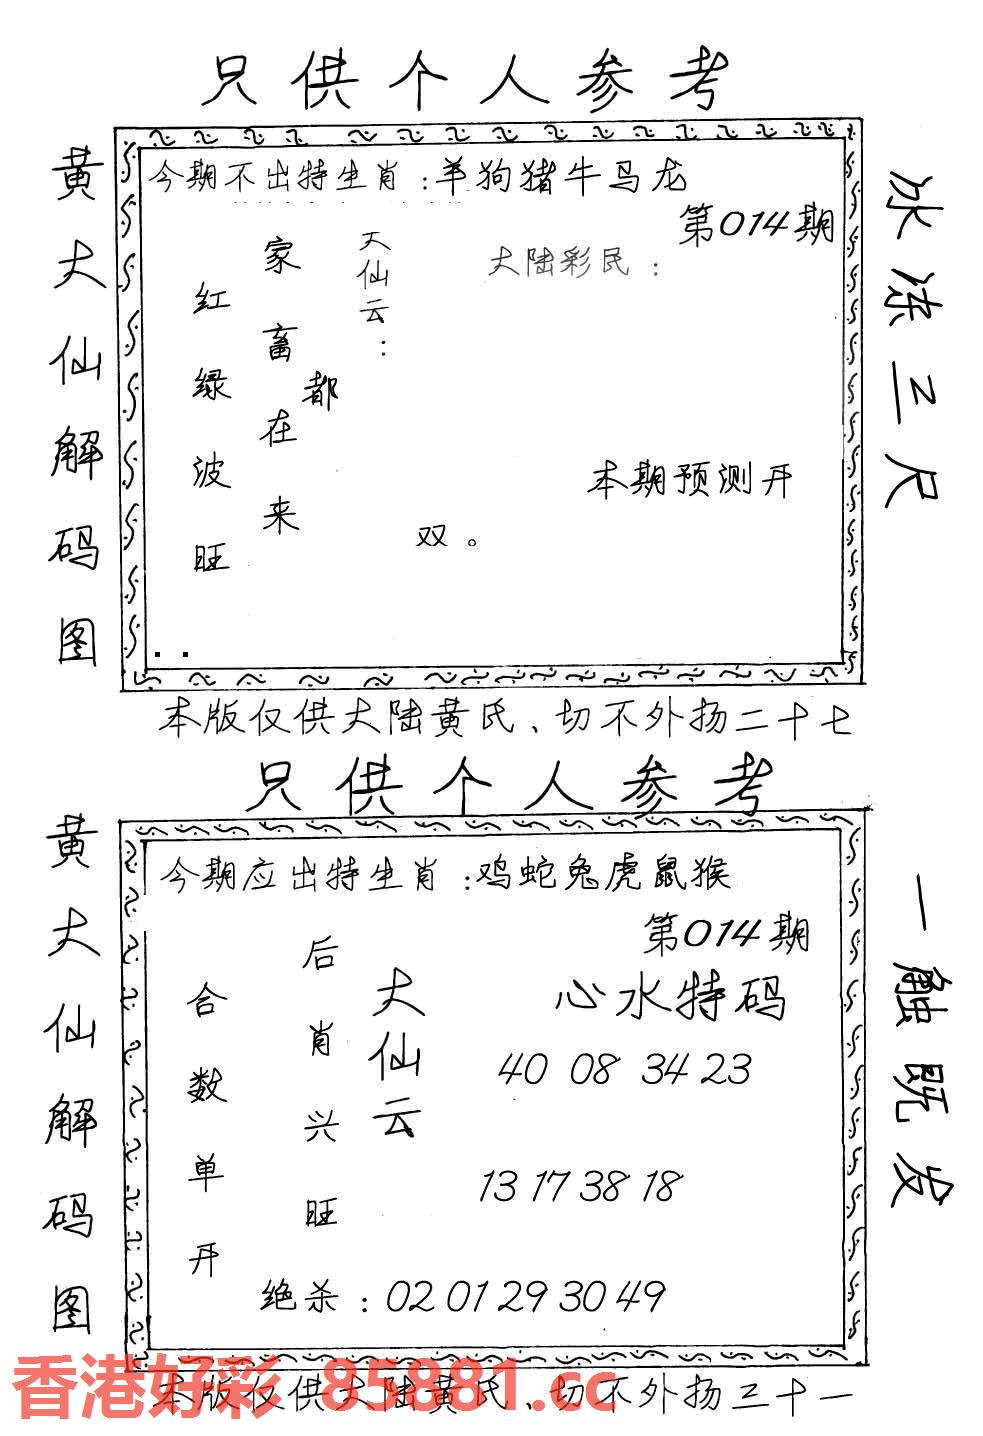 只供个人参考
黄大仙解码图
今期不出特生肖:羊狗猪牛马龙
第014期
大仙云:
家畜在来
都
红绿波旺
大陆彩民:
本期预测开
双。
冰冻三尺
本版仅供大陆黄氏、切不外扬二十七
只供个人参考
黄大仙解码图
今期应出特生肖:鸡蛇兔虎鼠猴
第014期
大仙云
后肖兴旺
合数单开
心水特码
40 08 34 23
13 17 38 18
绝杀:02 01 29 30 49
一触既发
香港好彩 85881.cc
本版仅供大陆黄氏、切不外扬三十一